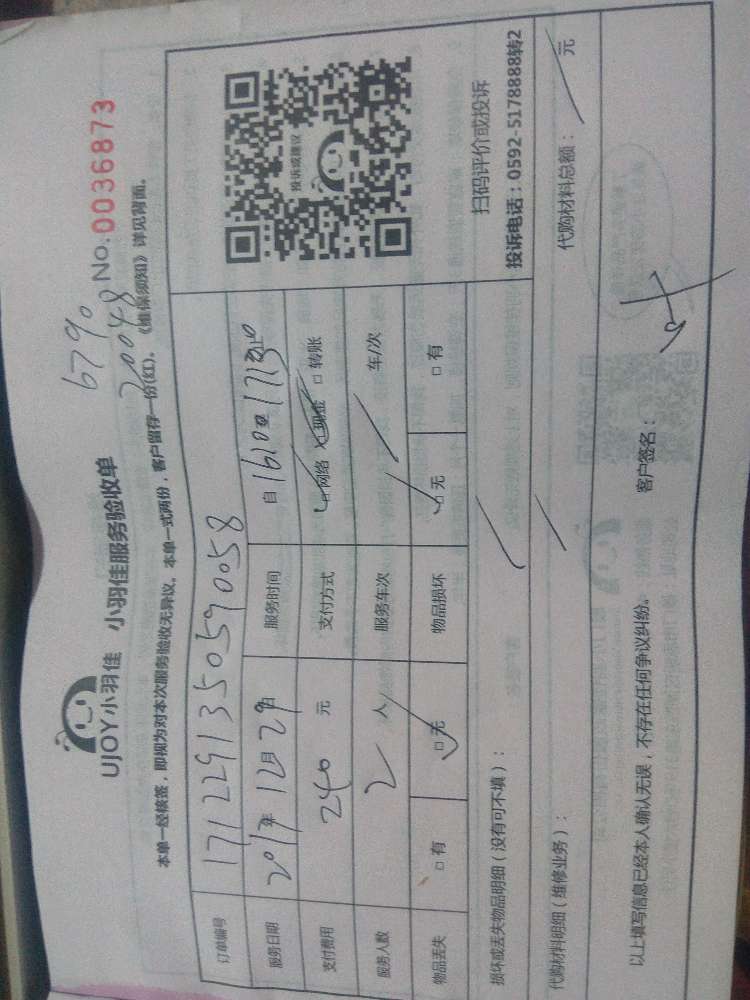 UJOY小羽佳 小羽佳服务验收单
6790
20048
No.0036873
本单一经核签,即视为对本次服务验收无异议。本单一式两份,客户留存一份(红)。《维保须知》详见背面。
订单编号 171229135059 0058
服务日期 2017年12月29日 服务时间 自1610至1713止
支付费用 240 元 支付方式 □网络 □现金 □转账
服务人数 2 人 服务车次 车/次
物品丢失 □有 □无 物品损坏 □无 □有
投诉或建议
扫码评价或投诉
投诉电话:0592-5178888转2
损坏或丢失物品明细(没有可不填):
代购材料明细(维修业务): 代购材料总额: 元
以上填写信息已经本人确认无误,不存在任何争议纠纷。 客户签名: